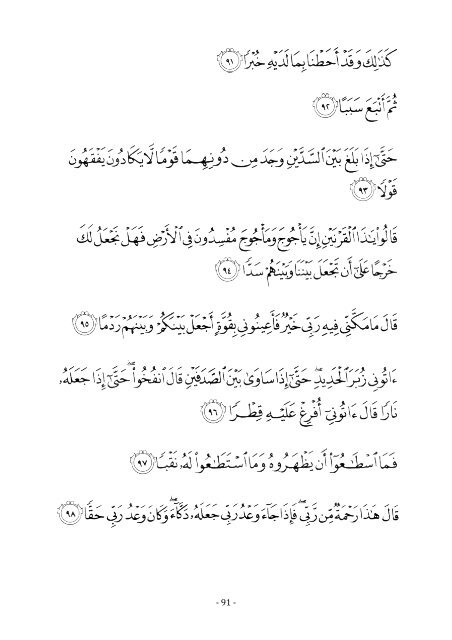 كَذَٰلِكَ وَقَدْ أَحَطْنَا بِمَا لَدَيْهِ خُبْرًا ٩١
ثُمَّ أَتْبَعَ سَبَبًا ٩٢
حَتَّىٰٓ إِذَا بَلَغَ بَيْنَ ٱلسَّدَّيْنِ وَجَدَ مِن دُونِهِمَا قَوْمًا لَّا يَكَادُونَ يَفْقَهُونَ
قَوْلًا ٩٣
قَالُوا۟ يَٰذَا ٱلْقَرْنَيْنِ إِنَّ يَأْجُوجَ وَمَأْجُوجَ مُفْسِدُونَ فِى ٱلْأَرْضِ فَهَلْ نَجْعَلُ لَكَ
خَرْجًا عَلَىٰٓ أَن تَجْعَلَ بَيْنَنَا وَبَيْنَهُمْ سَدًّا ٩٤
قَالَ مَا مَكَّنِّى فِيهِ رَبِّى خَيْرٌ فَأَعِينُونِى بِقُوَّةٍ أَجْعَلْ بَيْنَكُمْ وَبَيْنَهُمْ رَدْمًا ٩٥
ءَاتُونِى زُبَرَ ٱلْحَدِيدِ ۖ حَتَّىٰٓ إِذَا سَاوَىٰ بَيْنَ ٱلصَّدَفَيْنِ قَالَ ٱنفُخُوا۟ ۖ حَتَّىٰٓ إِذَا جَعَلَهُۥ
نَارًا قَالَ ءَاتُونِىٓ أُفْرِغْ عَلَيْهِ قِطْرًا ٩٦
فَمَا ٱسْطَٰعُوٓا۟ أَن يَظْهَرُوهُ وَمَا ٱسْتَطَٰعُوا۟ لَهُۥ نَقْبًا ٩٧
قَالَ هَٰذَا رَحْمَةٌ مِّن رَّبِّى ۖ فَإِذَا جَآءَ وَعْدُ رَبِّى جَعَلَهُۥ دَكَّآءَ ۖ وَكَانَ وَعْدُ رَبِّى حَقًّا ٩٨
- 91 -